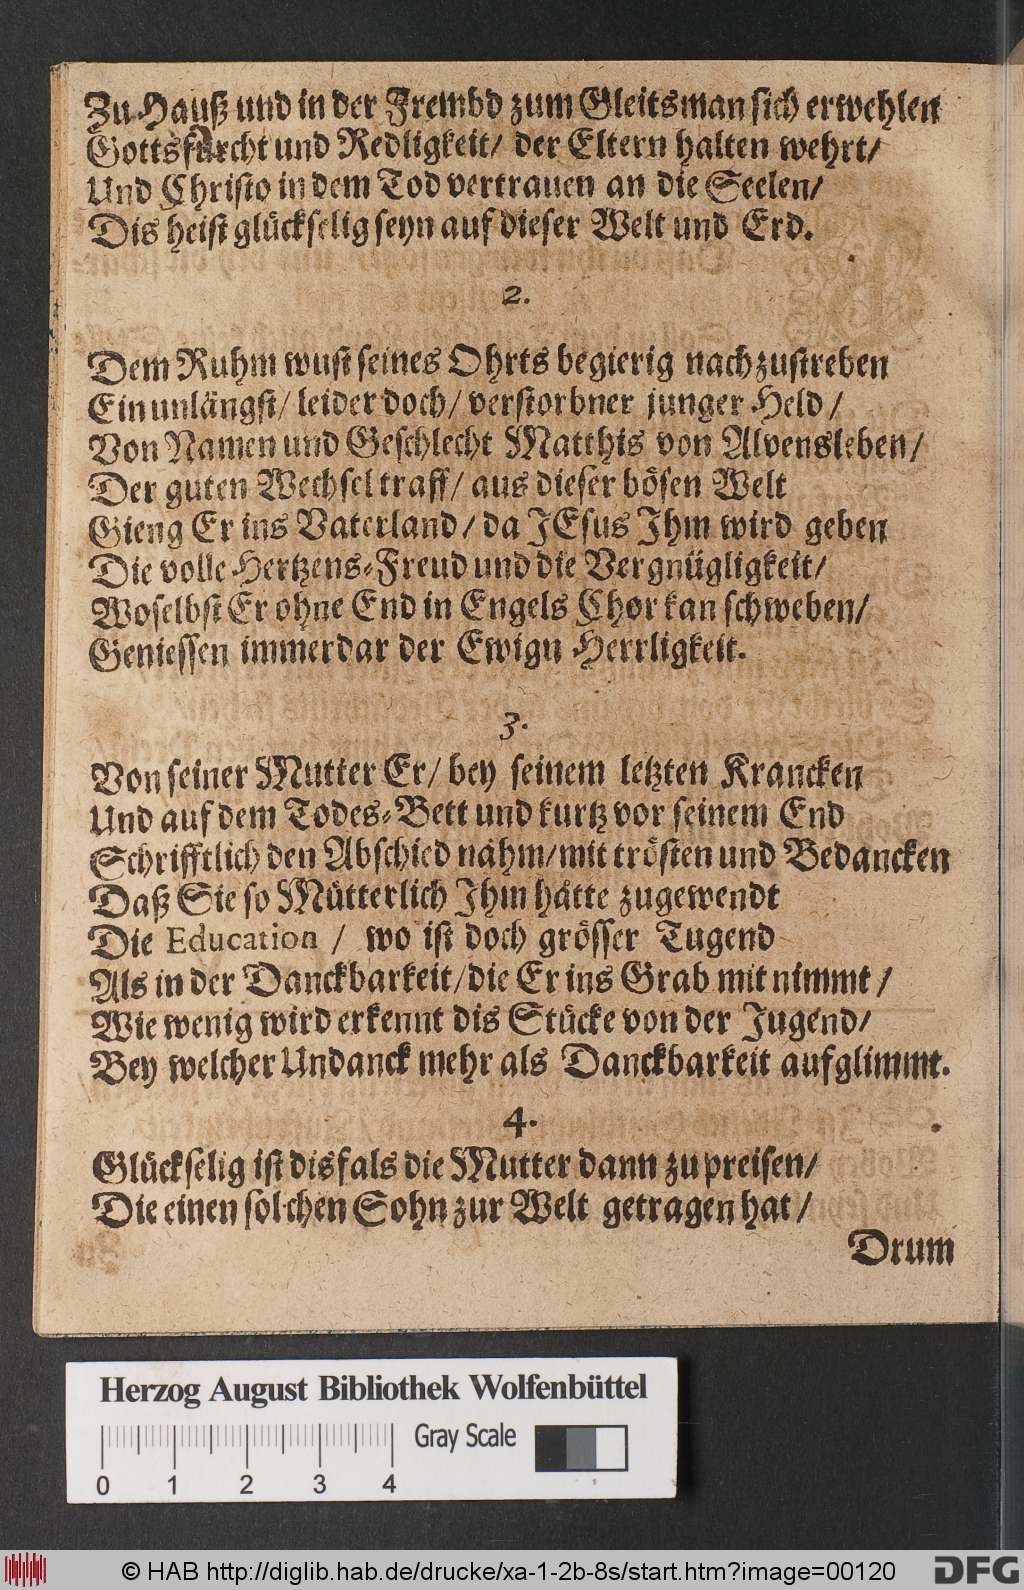 Zu-Hauß und in der Frembd zum Gleitsman sich erwehlen
Gottsfurcht und Redligkeit/ der Eltern halten wehrt/
Und Christo in dem Tod vertrauen an die Seelen/
Dis heist glückselig seyn auf dieser Welt und Erd.
2.
Dem Ruhm wust seines Ohrts begierig nachzustreben
Ein unlängst/ leider doch/ verstorbner junger Held/
Von Namen und Geschlecht Matthis von Alvensleben/
Der guten Wechsel traff/ aus dieser bösen Welt
Gieng Er ins Vaterland/ da JEsus Ihm wird geben
Die volle Hertzens-Freud und die Vergnügligkeit/
Woselbst Er ohne End in Engels Chor kan schweben/
Geniessen immerdar der Ewign Herrligkeit.
3.
Von seiner Mutter Er/ bey seinem letzten Krancken
Und auf dem Todes-Bett und kurtz vor seinem End
Schrifftlich den Abschied nahm/ mit trösten und Bedancken
Daß Sie so Mütterlich Ihm hätte zugewendt
Die Education / wo ist doch grösser Tugend
Als in der Danckbarkeit/ die Er ins Grab mit nimmt/
Wie wenig wird erkennt dis Stücke von der Jugend/
Bey welcher Undanck mehr als Danckbarkeit aufglimmt.
4.
Glückselig ist disfals die Mutter dann zu preisen/
Die einen solchen Sohn zur Welt getragen hat/
Drum
Herzog August Bibliothek Wolfenbüttel
Gray Scale
0 1 2 3 4
© HAB http://diglib.hab.de/drucke/xa-1-2b-8s/start.htm?image=00120
DFG